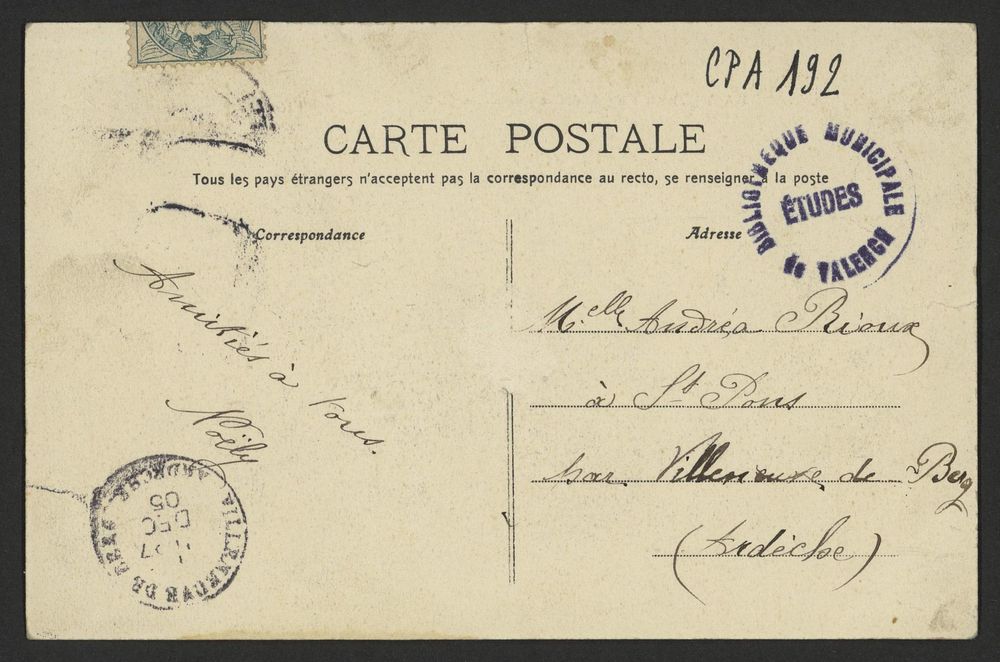 CPA 192
CARTE POSTALE
Tous les pays étrangers n'acceptent pas la correspondance au recto, se renseigner à la poste
BIBLIOTHEQUE MUNICIPALE
ÉTUDES
de VALENCE
Correspondance
Adresse
Amitiés à vous.
Noëly
Melle Andréa Rioux
à St Pons
par Villeneuve de Berg
(Ardèche)
VILLENEUVE DE BERG
ARDÈCHE
DEC
05